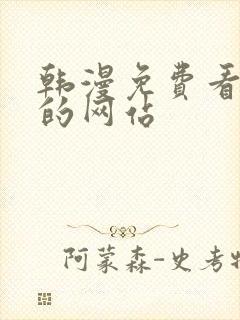 韩漫免费看
的网站
阿蒙森-史考特